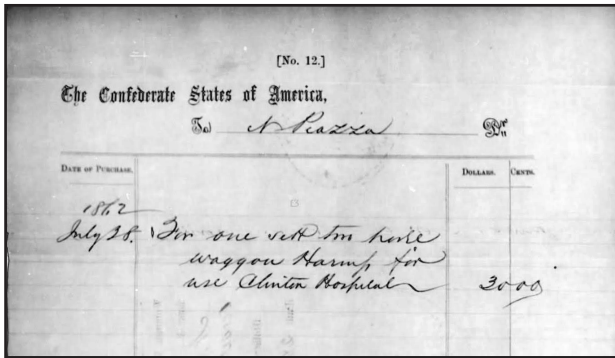 [No. 12.]
The Confederate States of America,
To N Piazza Dr.
DATE OF PURCHASE. DOLLARS. CENTS.
1862
July 28. For one sett two horse
waggon Harness for
use Clinton Hospital 30 00